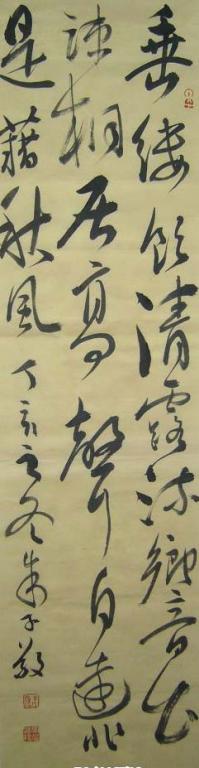 垂緌飲清露流響出
疎桐居高聲自遠非
是藉秋風丁亥之冬朱子敬